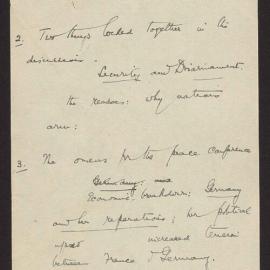 2. Two things locked together in this
discussion.
Security and Disarmament.
the reasons: why nations
arm:
3. The omens for the peace conference
Economic breakdown: Germany
and her reparations; her political
upset increased tension
between France & Germany.